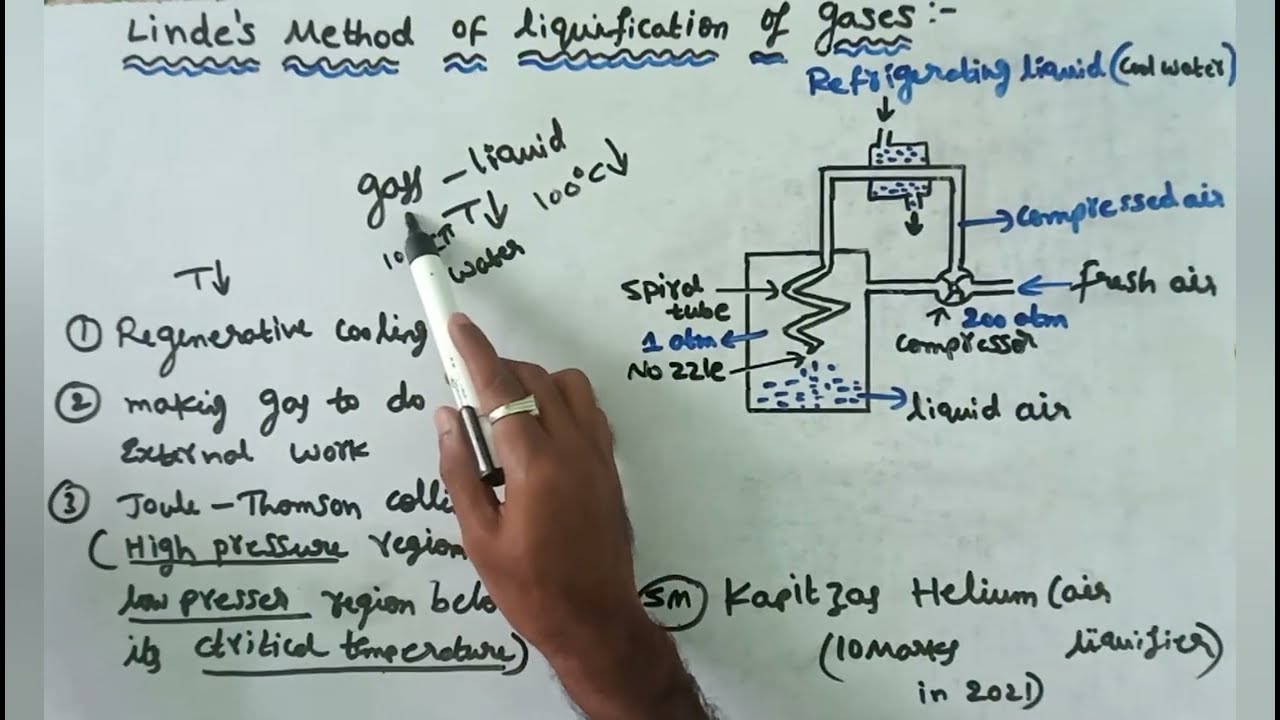 Linde's Method of liquification of gases:-
Refrigerating liquid (cool water)
gass - liquid
T↓ 100°C↓
water
T↓
① Regenerative cooling
② making gas to do
External work
③ Joule - Thomson
(High pressure region
low presser region
its ctritical temperature)
compressed air
fresh air
200 atm
compressor
spiral
tube
1 atm
Nozzle
liquid air
5M Kapitzas Helium (air
liquifier)
(10 Marks
in 2021)